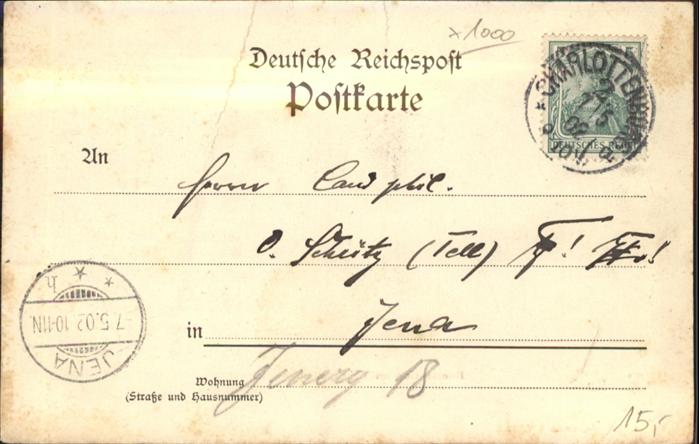 x 1000
Deutsche Reichspost
Postkarte
5
DEUTSCHES REICH
CHARLOTTENBURG
2
An
Herrn Cand phil.
O. Schütz (Tell)
in Jena
Wohnung
(Straße und Hausnummer)
18
JENA
7.5.02.10-11N.
h
15,-